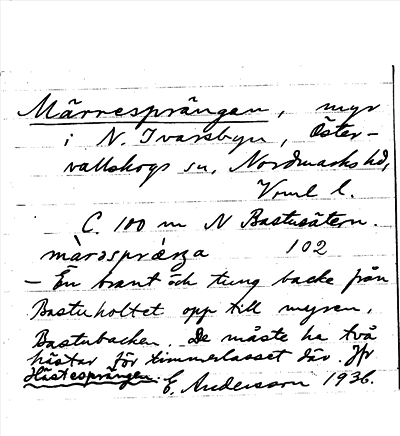 Märresprängan, myr
i N. Ivarsbyn, Öster-
vallskogs sn, Nordmarks hd,
Vrml l.
C. 100 m N Bastusätern.
mà̀rəsprǽŋa 102
– En brant och tung backe från
Bastuholtet opp till myren,
Bastubacken. De måste ha två
hästar för timmerlasset där. Jfr
Hästesprängen.
E. Andersson 1936.